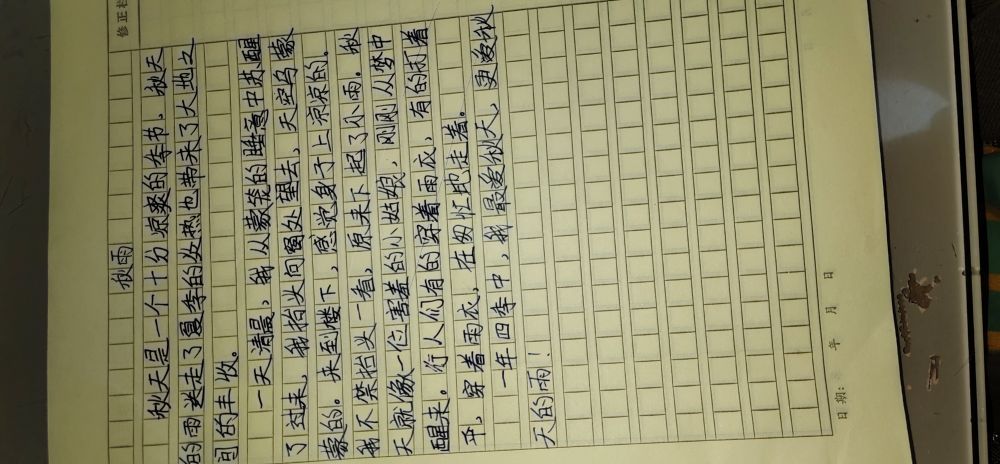 修正栏
秋雨
秋天是一个十分凉爽的季节。秋天
的雨送走了夏季的炎热也带来了大地之
间的丰收。
一天清晨,我从蒙胧的睡意中苏醒
了过来,我抬头向窗处望去,天空乌蒙
蒙的。来到楼下,感觉身于上凉凉的。
我不禁抬头一看,原来下起了小雨。秋
天就像一位害羞的小姑娘,刚刚从梦中
醒来。行人们有的穿着雨衣,有的打着
伞,穿着雨衣,在匆忙地走着。
一年四季中,我最爱秋天,更爱秋
天的雨!
日期: 年 月 日